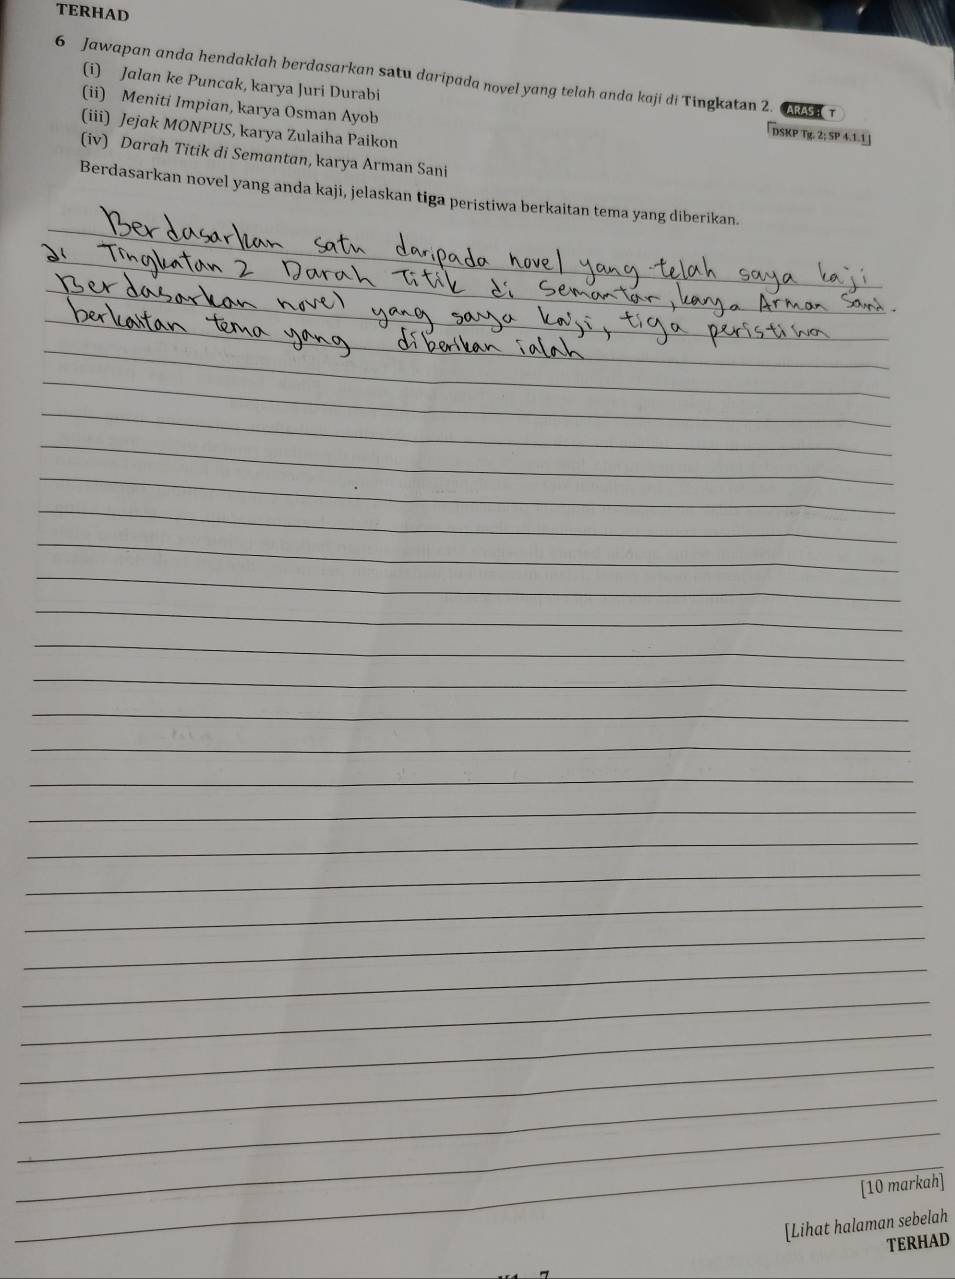 TERHAD
6 Jawapan anda hendaklah berdasarkan satu daripada novel yang telah anda kaji di Tingkatan 2. ARAS : T
(i) Jalan ke Puncak, karya Juri Durabi
DSKP Tg. 2; SP 4.1.1
(ii) Meniti Impian, karya Osman Ayob
(iii) Jejak MONPUS, karya Zulaiha Paikon
(iv) Darah Titik di Semantan, karya Arman Sani
Berdasarkan novel yang anda kaji, jelaskan tiga peristiwa berkaitan tema yang diberikan.
Berdasarkan satu daripada novel yang telah saya kaji
di Tingkatan 2 Darah Titik di Semantan, karya Arman Sani.
Berdasarkan novel yang saya kaji, tiga peristiwa
berkaitan tema yang diberikan ialah
[10 markah]
[Lihat halaman sebelah
TERHAD